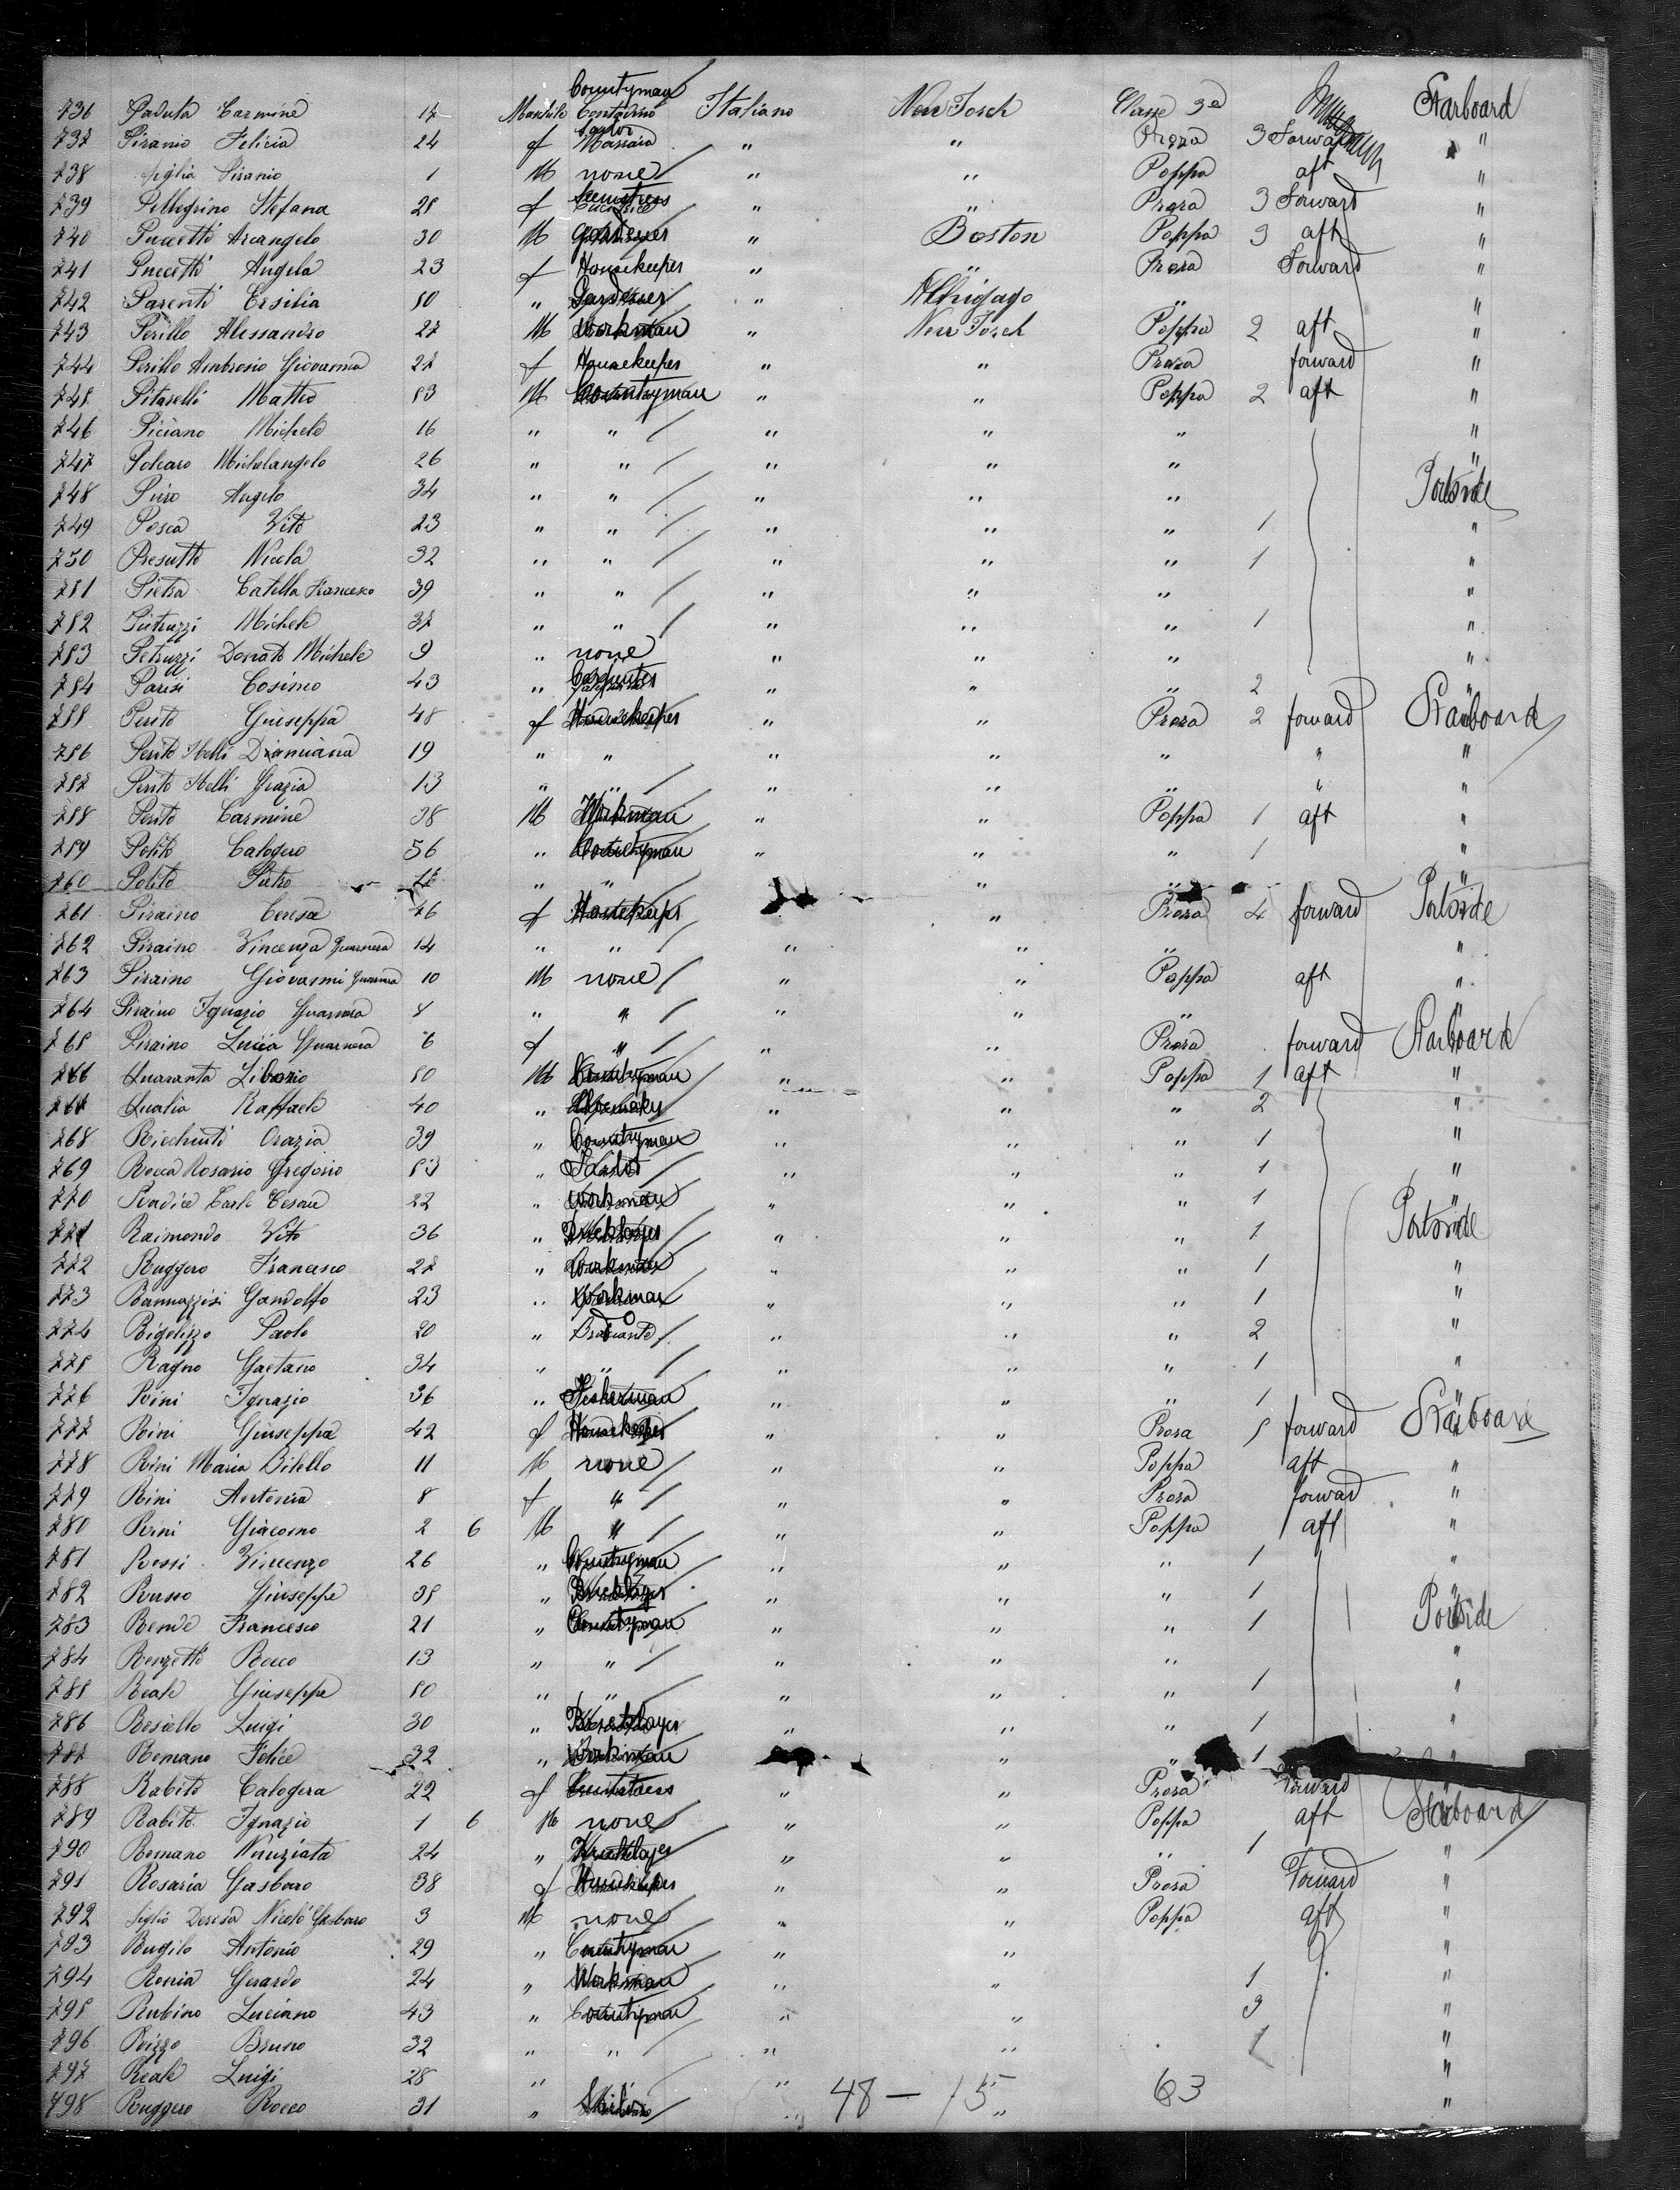 736 Padula Carmine 17 Maschile Countryman Contadino Italiano New Josch Classe 3a Starboard
737 Piranio Felicia 24 f Massaia " " Prora 3 Forward "
738 figlia Piranio 1 M none " " Poppa aft "
739 Pellegrino Stefana 28 f Seamstress " " Prora 3 Forward "
740 Puccetti Arcangelo 30 M gardener " Boston Poppa 3 aft "
741 Puccetti Angela 23 f Housekeeper " " Prora Forward "
742 Parenti Ersilia 50 " Gardener " Chigago " "
743 Perillo Alessandro 27 M Workman " New Josch Poppa 2 aft "
744 Perillo Ambrosio Giovanna 27 f Housekeeper " " Prora forward "
745 Pitaselli Matteo 53 M Countryman " " Poppa 2 aft "
746 Piciano Michele 16 " " " " " "
747 Polcaro Michelangelo 26 " " " " " "
748 Piro Angelo 34 " " " " " Portside
749 Posca Vito 23 " " " " " 1 "
750 Presutto Nicola 32 " " " " " 1 "
751 Pietra Catella Francesco 39 " " " " " "
752 Pietruzzi Michele 37 " " " " " 1 "
753 Petruzzi Donato Michele 9 " none " " " "
754 Parisi Cosimo 43 " Carpenter " " " 2 "
755 Perito Giuseppa 48 f Housekeeper " " Prora 2 forward Starboard
756 Perito Stelli Damiana 19 " " " " " " "
757 Perito Stelli Grazia 13 " " " " " " "
758 Perito Carmine 38 M Workman " " Poppa 1 aft "
759 Polito Calogero 56 " Countryman " " " 1 "
760 Polito Pietro 17 " " " " "
761 Piraino Teresa 46 f Housekeeper " Prora 4 forward Portside
762 Piraino Vincenza Guarnera 14 " " " " "
763 Piraino Giovanni Guarnera 10 M none " " Poppa aft "
764 Piraino Ignazio Guarnera 8 " " " " " "
765 Piraino Lucia Guarnera 6 f " " " Prora forward Starboard
766 Quaranta Liborio 50 M Countryman " " Poppa 1 aft "
767 Qualia Raffaele 40 " Shoemaker " " " 2 "
768 Ricchiuti Orazia 39 " Countryman " " " 1 "
769 Rocca Rosario Gregorio 53 " Sailor " " " 1 "
770 Radice Carlo Cesare 22 " workman " " " 1 "
771 Raimondo Vito 36 " Bricklayer " " " 1 Portside
772 Ruggero Francesco 27 " Workman " " " 1 "
773 Rannazzisi Gandolfo 23 " Workman " " " 1 "
774 Rigolizzo Paolo 20 " do Braciante " " " 2 "
775 Ragno Gaetano 34 " " " " " 1 "
776 Rini Ignazio 36 " Fisherman " " " 1 "
777 Rini Giuseppa 42 f Housekeeper " " Prora 5 forward Starboard
778 Rini Maria Bitello 11 M none " " Poppa aft "
779 Rini Antonia 8 f " " " Prora forward "
780 Rini Giacomo 2 6 M " " " Poppa aft "
781 Rossi Vincenzo 26 " Countryman " " " 1 "
782 Russo Giuseppe 35 " Bricklayer " " " 1 "
783 Rende Francesco 21 " Countryman " " " 1 Portside
784 Renzetti Rocco 13 " " " " " "
785 Reale Giuseppe 50 " " " " " 1 "
786 Resiello Luigi 30 " Bricklayer " " " 1 "
787 Romano Felice 32 " Workman " " 1 "
788 Rabito Calogera 22 f " " Prora forward "
789 Rabito Ignazio 1 6 M none " " Poppa aft Starboard
790 Romano Nunziata 24 " Bricklayer " " " 1 "
791 Rosaria Gasbaro 38 f Housekeeper " " Prora Forward "
792 figlio Deresa Nicolò Gasbaro 3 M none " " Poppa aft "
793 Rugilo Antonio 29 " Countryman " " "
794 Renia Gerardo 24 " Workman " " 1 "
795 Rubino Luciano 43 " Countryman " " 3 "
796 Rizzo Bruno 32 " " " " 1 "
797 Reale Luigi 28 " " " "
798 Ruggero Rocco 31 " " " "
48 — 15 63